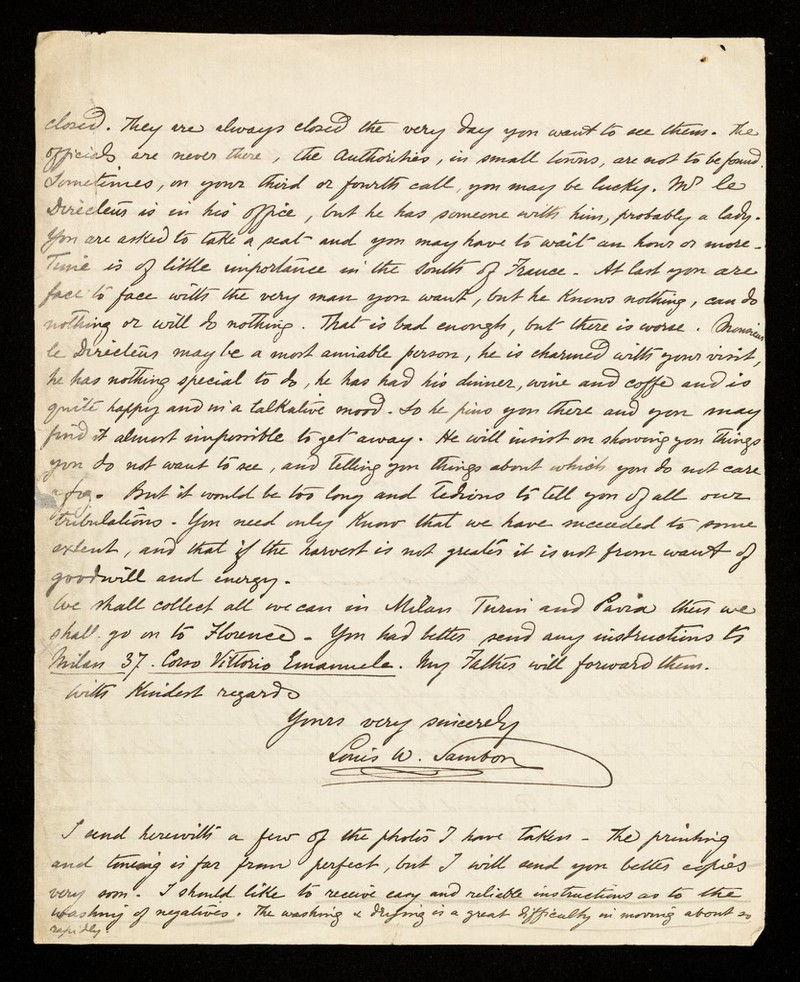 closed. They are always closed the very day you want to see them. The
Officials are never there, the Authorities, in small towns, are not to be found.
Sometimes, on your third or fourth call, you may be lucky. Mr le
Directeus is in his office, but he has someone with him, probably a lady.
You are asked to take a seat and you may have to wait an hour or more -
Time is of little importance in the South of France - At last you are
face to face with the very man you want, but he knows nothing, can do
nothing or will do nothing. That is bad enough, but there is worse. Monsieur
le Directeus may be a most amiable person, he is charmed with your visit,
he has nothing special to do, he has had his dinner, wine and coffe and is
quite happy and in a talkative mood. So he pins you there and you may
find it almost impossible to get away. He will insist on showing you things
you do not want to see, and telling you things about which you do not care
a fig. But it would be too long and tedious to tell you of all our
tribulations - You need only know that we have succeeded to some
extent, and that if the harvest is not greater it is not from want of
goodwill and energy -
We shall collect all we can in Milan Turin and Pavia then we
shall go on to Florence - You had better send any instructions to
Milan 37. Corso Vittorio Emanuele. My Father will forward them.
With Kindest regards
Yours very sincerely
Louis W. Sambon
I send herewith a few of the photos I have taken - The printing
and toning is far from perfect, but I will send you better copies
very soon. I should like to receive easy and reliable instructions as to the
washing of negatives. The washing & drying is a great difficulty in moving about so
rapidly.